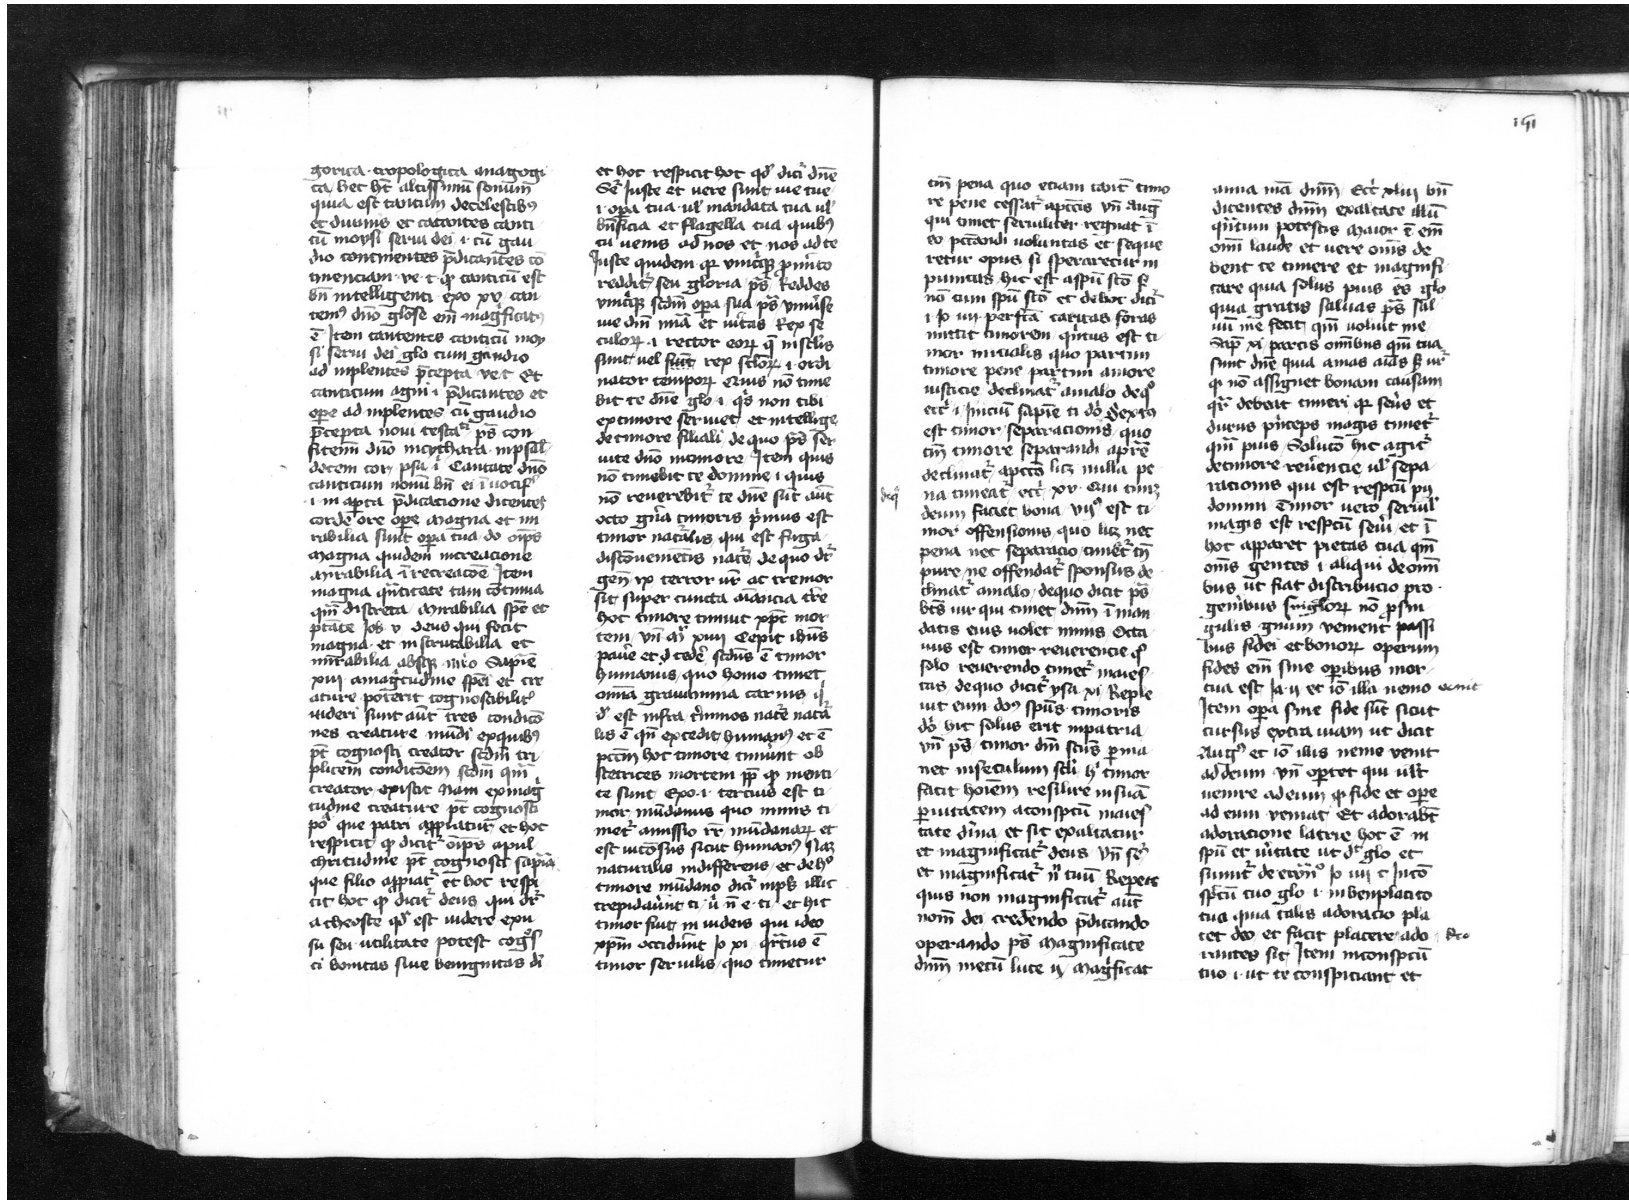 gorica tropologica anagogi
ca hec ht altissimū sonum
quia est tantum de celestibꝰ
et diuinis et cantantes canti
cū moysi serui dei .i. cū gau
dio continentes p̄dicantes cō
tinenciam ve. t. qꝫ canticū est
bn̄ intelligenti exo xv can
temꝰ dn̄o gl̄ose em̄ maḡficatꝰ
ē Item cantantes canticū moy
si serui dei glo cum gaudio
ad inplentes p̄cepta ve. t. Et
canticum agni .i. p̄dicantes et
oꝑe ad inplentes cū gaudio
p̄cepta noui testaꝭ pš con
fitemī dn̄o in cythara in psal
decem cor psaꝭ Cantate dn̄o
canticum nouū bn̄ ei ī vocif
.i. in aꝑta p̄dicacione dicentes
corde ore oꝑe Magna et mi
rabilia sunt oꝑa tua do oīps
Magna quidem in creacione
mirabilia ī recreacōe Item
magna q̄ntitate tam cōtinua
qm̄ discreta Mirabilia spē et
ptāte Job v deus qui fecit
magna et inscrutabilia et
mirabilia absqꝫ nūo Sapiē
xiii a magnitudine spēi et cre
ature poterit cognoscibilitꝭ
videri sunt aūt tres condicō
nes creature mūdi ex quibꝰ
pt̄ cognosci creator scdm̄ tri
plicem condicōem scdm̄ qm̄
creator existit Nam ex mag
tudine creature pt̄ cognosci
poꝰ que patri appriatur et hoc
respicit qꝫ dicitꝭ oīps a pul
chritudine pt̄ cognosci sapīa
que filio appiatꝭ et hoc respi
cit hoc qꝫ dicitꝭ deus qui dꝭ
a theoste qd̄ est videre ex vi
su seu vtilitate potest cogs
ci bonitas siue benignitas dī
et hoc respicit hoc qd̄ dicī dn̄e
Seꝭ Iuste et vere sunt vie tue
.i. oꝑa tua vl̄ mandata tua vl̄
bn̄ficia et flagella tua quibꝰ
tu venis ad nos et nos ad te
Iuste quidem qꝛ vnicuiqꝫ p̄mito
redditꝭ seu gloria pš Reddes
vnicuiqꝫ scdm̄ oꝑa sua pš vniūse
vie dn̄i mīa et vītas Rex se
culoꝝ .i. rector eoꝝ q̄ in sclīs
sunt vel sunt rex scloꝝ .i. ordi
nator tempoꝝ Quis nō time
bit te dn̄e glo .i. qs non tibi
ex timore seruiet et intellige
de timore filiali de quo pš ser
uite dn̄o in timore Item quis
nō timebit te domine .i. quis
nō reuerebitꝭ te dn̄e sūt aūt
octo gn̄a timoris p̄mus est
timor naturalis qui est fuga
disconueniētis natē de quo dꝭ
geñ ix terror vr̄ ac tremor
sit super cuncta aīancia tr̄e
hoc timore timuit xp̄c mor
tem vn̄ Mꝭ xiiii Cepit ihūs
pauē et tedē scdūs ē timor
humanus quo homo timet
omīa grauamina carnis
est infra tīminos natē natā
lis ē qn̄ excedit humanꝰ et ē
pccm̄ hoc timore timūnt ob
stetrices mortem pp̄ qꝫ menti
te sunt Exo .i. tercius est ti
mor mūdanus quo nimis ti
metꝭ amissio rerꝭ mūdanaꝝ et
est vicōsus sicut humanꝰ Naꝫ
naturalis indifferens et de hꝰ
timore mūdano dicī in ps illic
trepidaūnt ti v̄ n̄ e. ti et hic
timor fuit in iudeis qui ideo
xp̄m occidūnt Jo xi qr̄tus ē
timor seruilis quo timetur
191
tm̄ pena quo etiam carit timo
re pene cessatꝭ a pccīs vn̄ aug
qui timet seruiliter regnat ī
eo pccandi voluntas et seque
retur opus si speraretur in
punitas hic est a spū scō s
nō cum spū scō et de hoc dicī
.i. Jo iiii perfecta caritas foras
mittit timorem qntus est ti
mor inicialis quo partim
timore pene partim amore
iusticie declinatꝭ a malo de qꝰ
eccī .i. Iniciū sapiē ti dō Sexto
est timor separacionis quo
tm̄ timore separandi a pr̄e
declinatꝭ a pccō licꝫ nulla pe
na timeatꝭ eccī xv Qui timꝫ
deum faciet bona vijꝰ est ti
mor offensionis quo licꝫ nec
pena nec separacio timetꝭ tn̄
pure ne offendatꝭ sponsus de
clinatꝭ a malo de quo dicit pš
bt̄s vir qui timet dnm̄ ī man
datis eius volet nimis Octa
uus est timor reuerencie qꝰ
solo reuerendo timetꝭ maies
tas de quo dicitꝭ ysa xi Reple
uit eum dōs spūs timoris
dō hic solus erit in patria
vn̄ pš timor dn̄i scūs ꝑma
net in seculum sclī hꝰ timor
facit hoīem resilire in suā
ꝑuitatem a conspectū maies
tate dīna et sic exultatur
et magnificatꝭ deus vn̄ seꝭ
et magnificatꝭ n̄ tuū Repetit
quis non magnificatꝭ aūt
nom̄ dei credendo p̄dicando
operando pš Magnificate
dnm̄ mecū luce ij Mag̅ficat
anima mea dnm̄ Eccī xliij bn̄
dicentes dnm̄ exaltate illū
q̄ntum potestis maior ē em̄
omī laude et vere omīs de
bent te timere et magnifi
care quia solus pius es glo
quia gratis saluas pš sal
uū me fecit qm̄ voluit me
Sap̄ xi parcis omībus qm̄ tua
sunt dn̄e quia amas aīas s vr̄
qꝫ nō assignet bonam causam
qr̄ debeat timeri qꝛ seūs et
durus pn̄ceps magis timetꝭ
qm̄ pius Solucō hic agitꝭ
de timore reūencie vl̄ sepa
racionis qui est respectū pij
domini timor vero seruil
magis est respectū seūi et ī
hoc apparet pietas tua qm̄
omīs gentes .i. aliqui de omī
bus vt fiat distribucio pro
generibus singuloꝝ nō p sin
gulis gn̄um venient passi
bus fidei et bonoꝝ operum
fides em̄ sine oꝑibus mor
tua est Ja ij et iō illa nemo venit
Item oꝑa sine fide sūt sicut
cursus extra viam vt dicit
Augꝰ et iō illis nemo venit
ad deum vn̄ oꝑtet qui vult
venire ad eum qꝫ fide et oꝑe
ad eum veniat Et adorabt̄
adoracione latrie hoc ē in
spū et vītate vt dꝭ glo et
sumitꝭ de Jo iiii c In cō
spectū tuo glo .i. in beneplacito
tuo quia talis adoracio pla
cet deo et facit placere ado Deo
rantes sic Item in conspectū
tuo .i. vt te conspiciant et